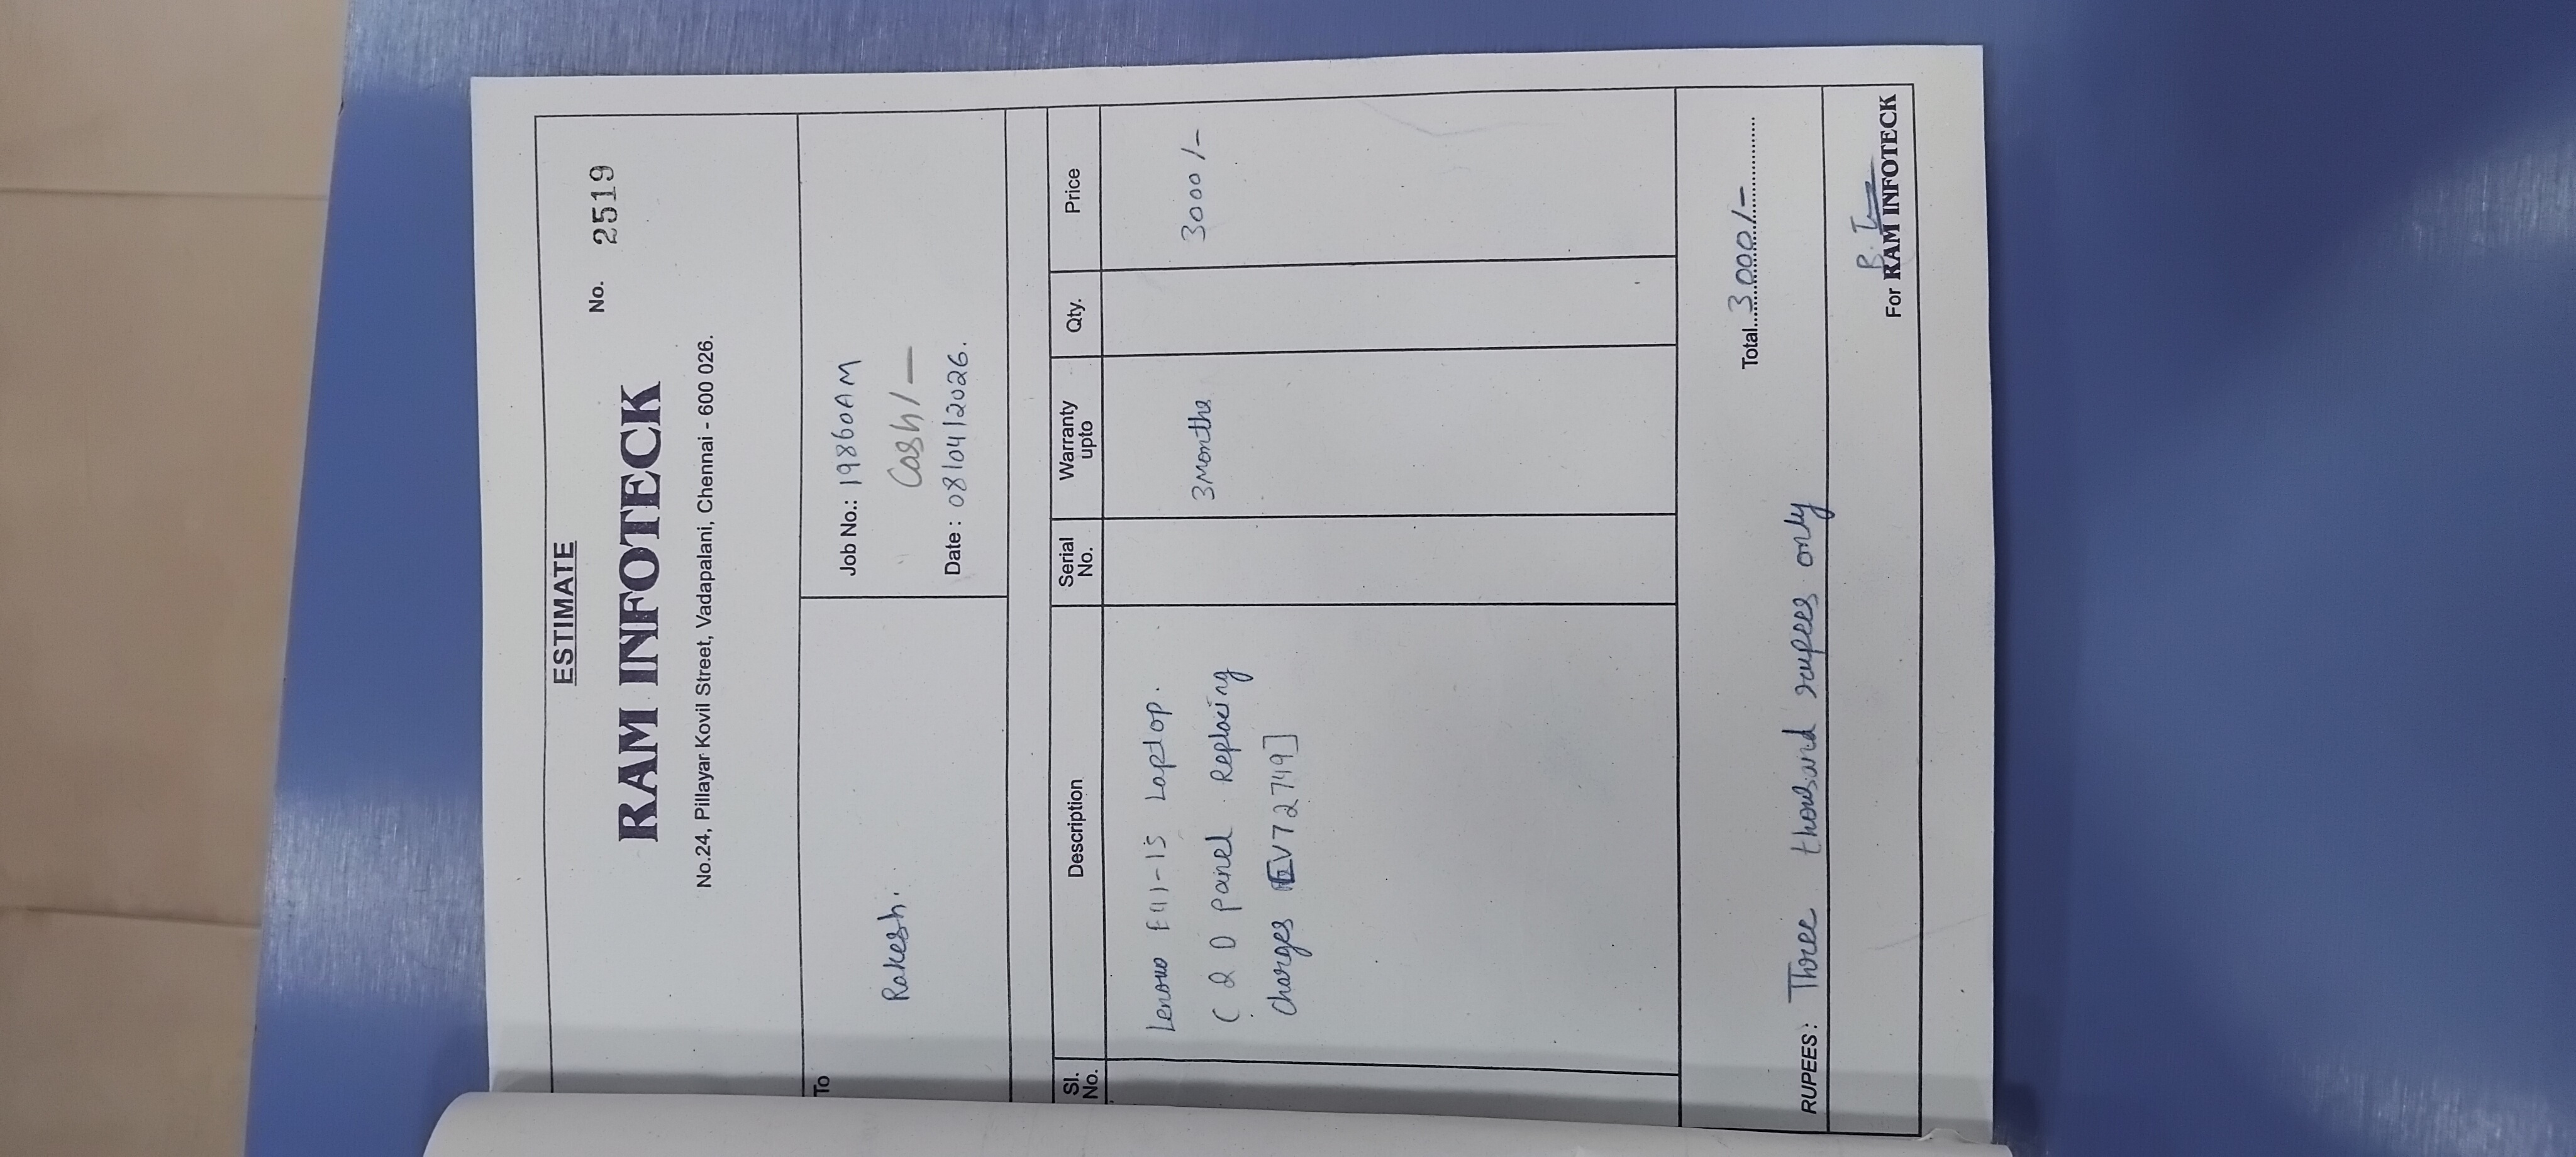 ESTIMATE
RAM INFOTECK
No. 2519
No.24, Pillayar Kovil Street, Vadapalani, Chennai - 600 026.
To
Rakesh.
Job No.: 19860AM
Cash/—
Date : 08/04/2026.
Sl. No. Description Serial No. Warranty upto Qty. Price
Lenovo E41-15 Laptop.
( 2 D Panel Replacing 3Months 3000/-
Charges EV72749]
Total...3000/-...
RUPEES: Three thousand rupees only
For RAM INFOTECK